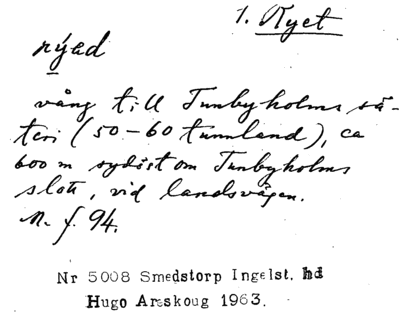 1. Ryet
nýad
vång till Tunbyholms sä-
teri (50-60 tunnland), ca
600 m sydöst om Tunbyholms
slott, vid landsvägen.
M. f. 94.
Nr 5008 Smedstorp Ingelst. hd
Hugo Areskoug 1963.